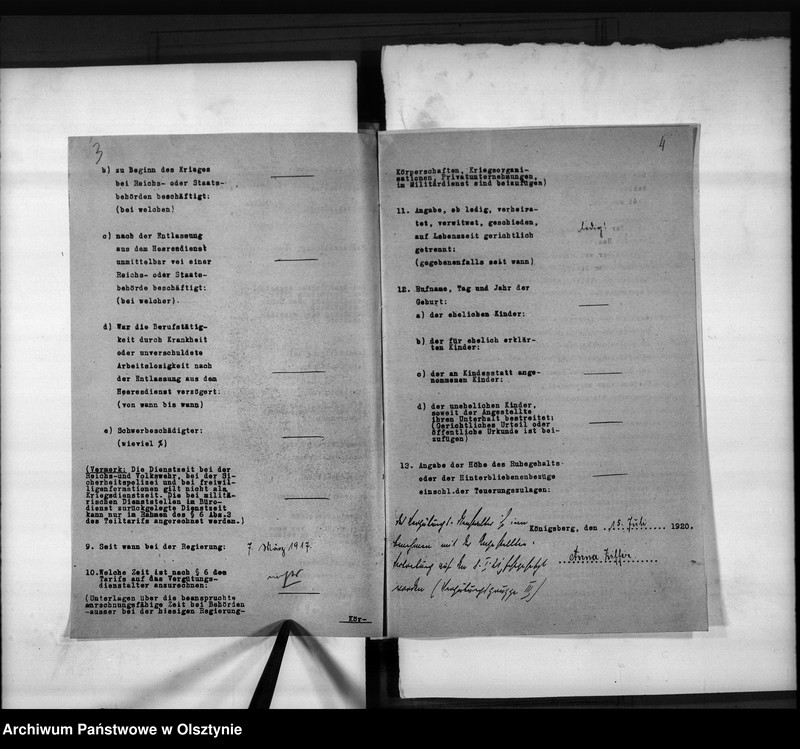 3
b) zu Beginn des Krieges
bei Reichs- oder Staats-
behörden beschäftigt:
(bei welchen)
c) nach der Entlassung
aus dem Heeresdienst
unmittelbar vei einer
Reichs- oder Staats-
behörde beschäftigt:
(bei welcher).
d) War die Berufstätig-
keit durch Krankheit
oder unverschuldete
Arbeitslosigkeit nach
der Entlassung aus dem
Heeresdienst verzögert:
(von wann bis wann)
e) Schwerbeschädigter:
(wieviel %)
(Vermerk: Die Dienstzeit bei der
Reichs-und Volkswehr, bei der Si-
cherheitspolizei und bei freiwil-
ligenformationen gilt nicht als
Kriegsdienstzeit. Die bei militä-
rischen Dienststellen im Büro-
dienst zurückgelegte Dienstzeit
kann nur im Rahmen des § 6 Abs.2
des Teiltarifs angerechnet werden.)
9. Seit wann bei der Regierung: 7. März 1917.
10. Welche Zeit ist nach § 6 des
Tarifs auf das Vergütungs-
dienstalter anzurechnen:
(Unterlagen über die beanspruchte
anrechnungsfähige Zeit bei Behörden
-ausser bei der hiesigen Regierung-
Kör-
4
Körperschaften, Kriegsorgani-
sationen, Privatunternehmungen,
im Militärdienst sind beizufügen)
11. Angabe, ob ledig, verheira-
tet, verwitwet, geschieden,
auf Lebenszeit gerichtlich
getrennt: ledig!
(gegebenenfalls seit wann)
12. Rufname, Tag und Jahr der
Geburt:
a) der ehelichen Kinder:
b) der für ehelich erklär-
ten Kinder:
c) der an Kindesstatt ange-
nommenen Kinder:
d) der unehelichen Kinder,
soweit der Angestellte
ihren Unterhalt bestreitet:
(Gerichtliches Urteil oder
öffentliche Urkunde ist bei-
zufügen)
13. Angabe der Höhe des Ruhegehalts
oder der Hinterbliebenenbezüge
einschl.der Teuerungszulagen:
Königsberg, den 15. Juli 1920.
Anna
worden (Vergütungsgruppe III)
Archiwum Państwowe w Olsztynie